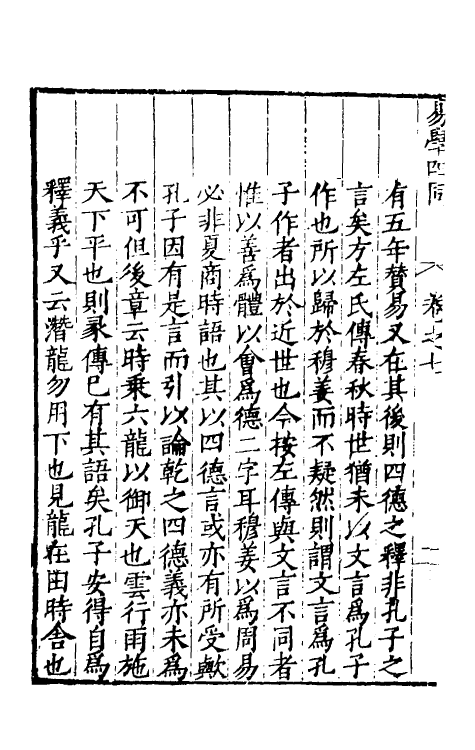 易學四同
卷之七
二
有五年賛易又在其後則四德之釋非孔子之
言矣方左氏傳春秋時世猶未以文言爲孔子
作也所以歸於穆姜而不疑然則謂文言爲孔
子作者出於近世也今按左傳與文言不同者
惟以善爲體以會爲德二字耳穆姜以爲周易
必非夏商時語也其以四德言或亦有所受歟
孔子因有是言而引以論乾之四德義亦未爲
不可但後章云時乗六龍以御天也雲行雨施
天下平也則彖傳已有其語矣孔子安得自爲
釋義乎又云潛龍勿用下也見龍在田時舎也